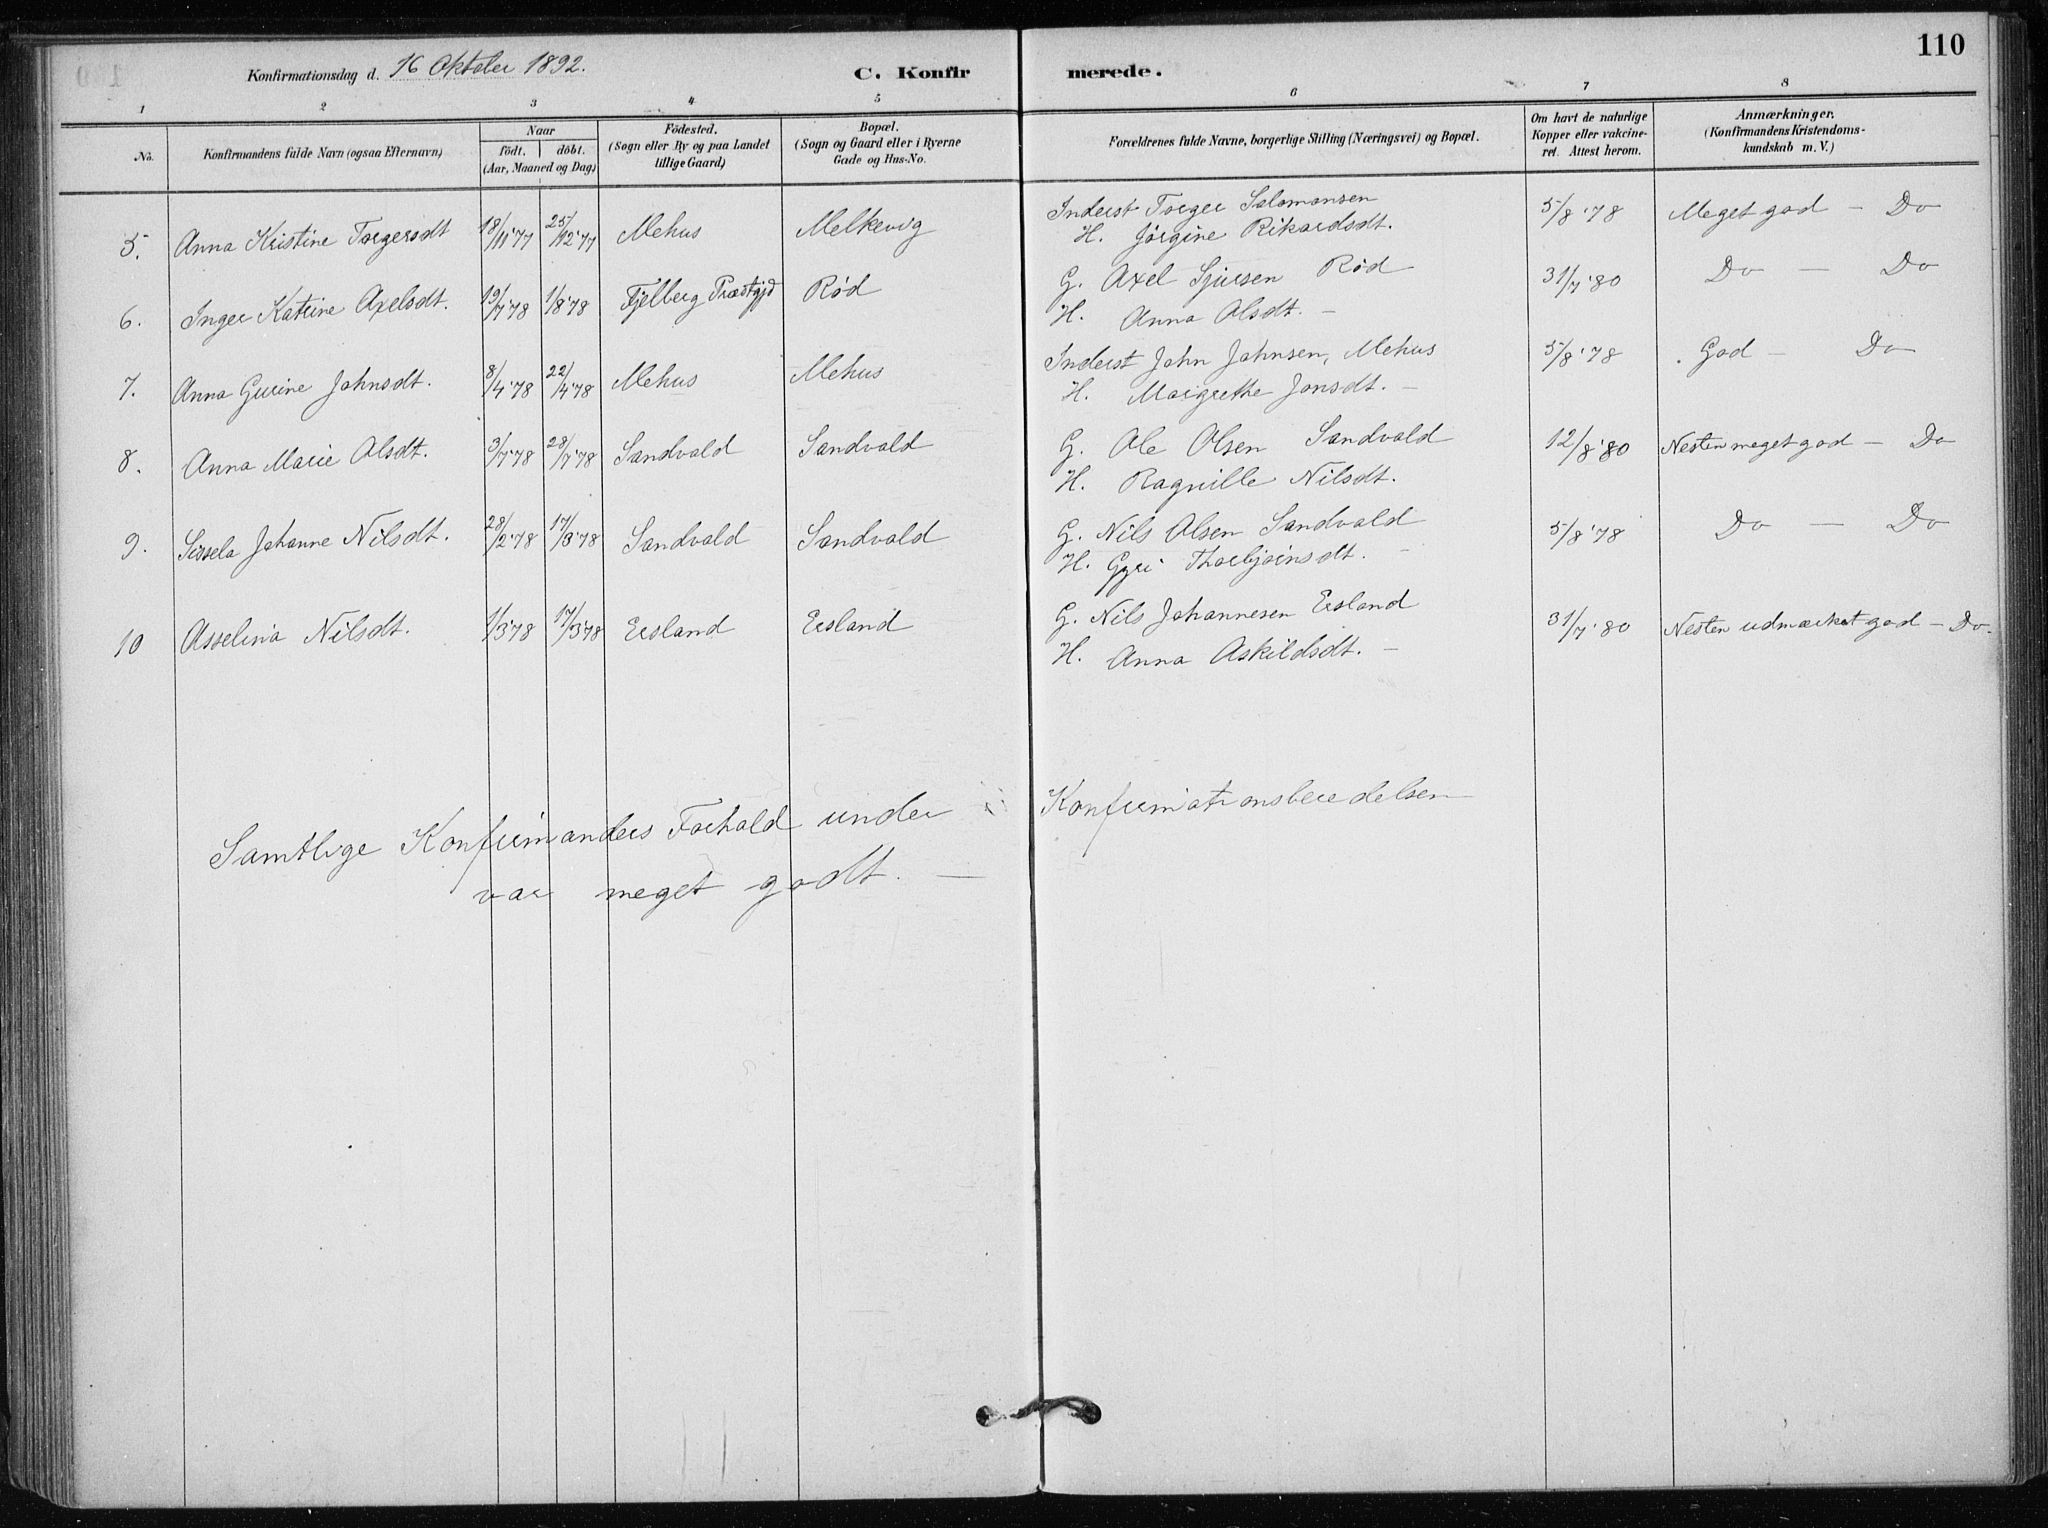 110
Konfirmationsdag d. 16 Oktober 1892.
C. Konfirmerede.
1 2 3 4 5 6 7 8
No.
Konfirmandens fulde Navn (ogsaa Efternavn)
Naar
født. døbt.
(Aar, Maaned og Dag)
Födested.
(Sogn eller By og paa Landet
tillige Gaard)
Bopæl.
(Sogn og Gaard eller i Byerne
Gade og Hus-No.
Forældrenes fulde Navne, borgerlige Stilling (Næringsvei) og Bopæl.
Om havt de naturlige
Kopper eller vakcine-
ret. Attest herom.
Anmærkninger.
(Konfirmandens Kristendoms-
kundskab m. V.)
5. Anna Kristine Torgersdt 18/11 '77 25/12 '77 Mehus Melkevig Inderst Torger Salomonsen 5/8 '78 Meget god — Do
H. Jørgine Rikardsdt.
6. Inger Katrine Axelsdt. 19/7 '78 1/8 '78 Fjelberg Præstgjd Rød G. Axel Sjursen Rød 31/7 '80 Do — Do
H. Anna Olsdt. —
7. Anna Gurine Johnsdt. 8/4 '78 22/4 '78 Mehus Mehus Inderst John Johnsen, Mehus 5/8 '78 God — Do
H. Margrethe Jonsdt. —
8. Anna Marie Olsdt. 3/7 '78 28/7 '78 Sandvald Sandvald G. Ole Olsen Sandvald 12/8 '80 Nesten meget god — Do
H. Ragnille Nilsdt.
9. Sissela Johanne Nilsdt. 28/2 '78 17/3 '78 Sandvald Sandvald G. Nils Olsen Sandvald 5/8 '78 Do — Do
H. Gyri Thorbjørnsdt. —
10 Asselina Nilsdt. 1/3 '78 17/3 '78 Ersland Ersland G. Nils Johannesen Ersland 31/7 '80 Nesten udmærket god — Do.
H. Anna Askildsdt. —
Samtlige Konfirmanders Forhold under Konfirmationsberedelsen
var meget godt. —